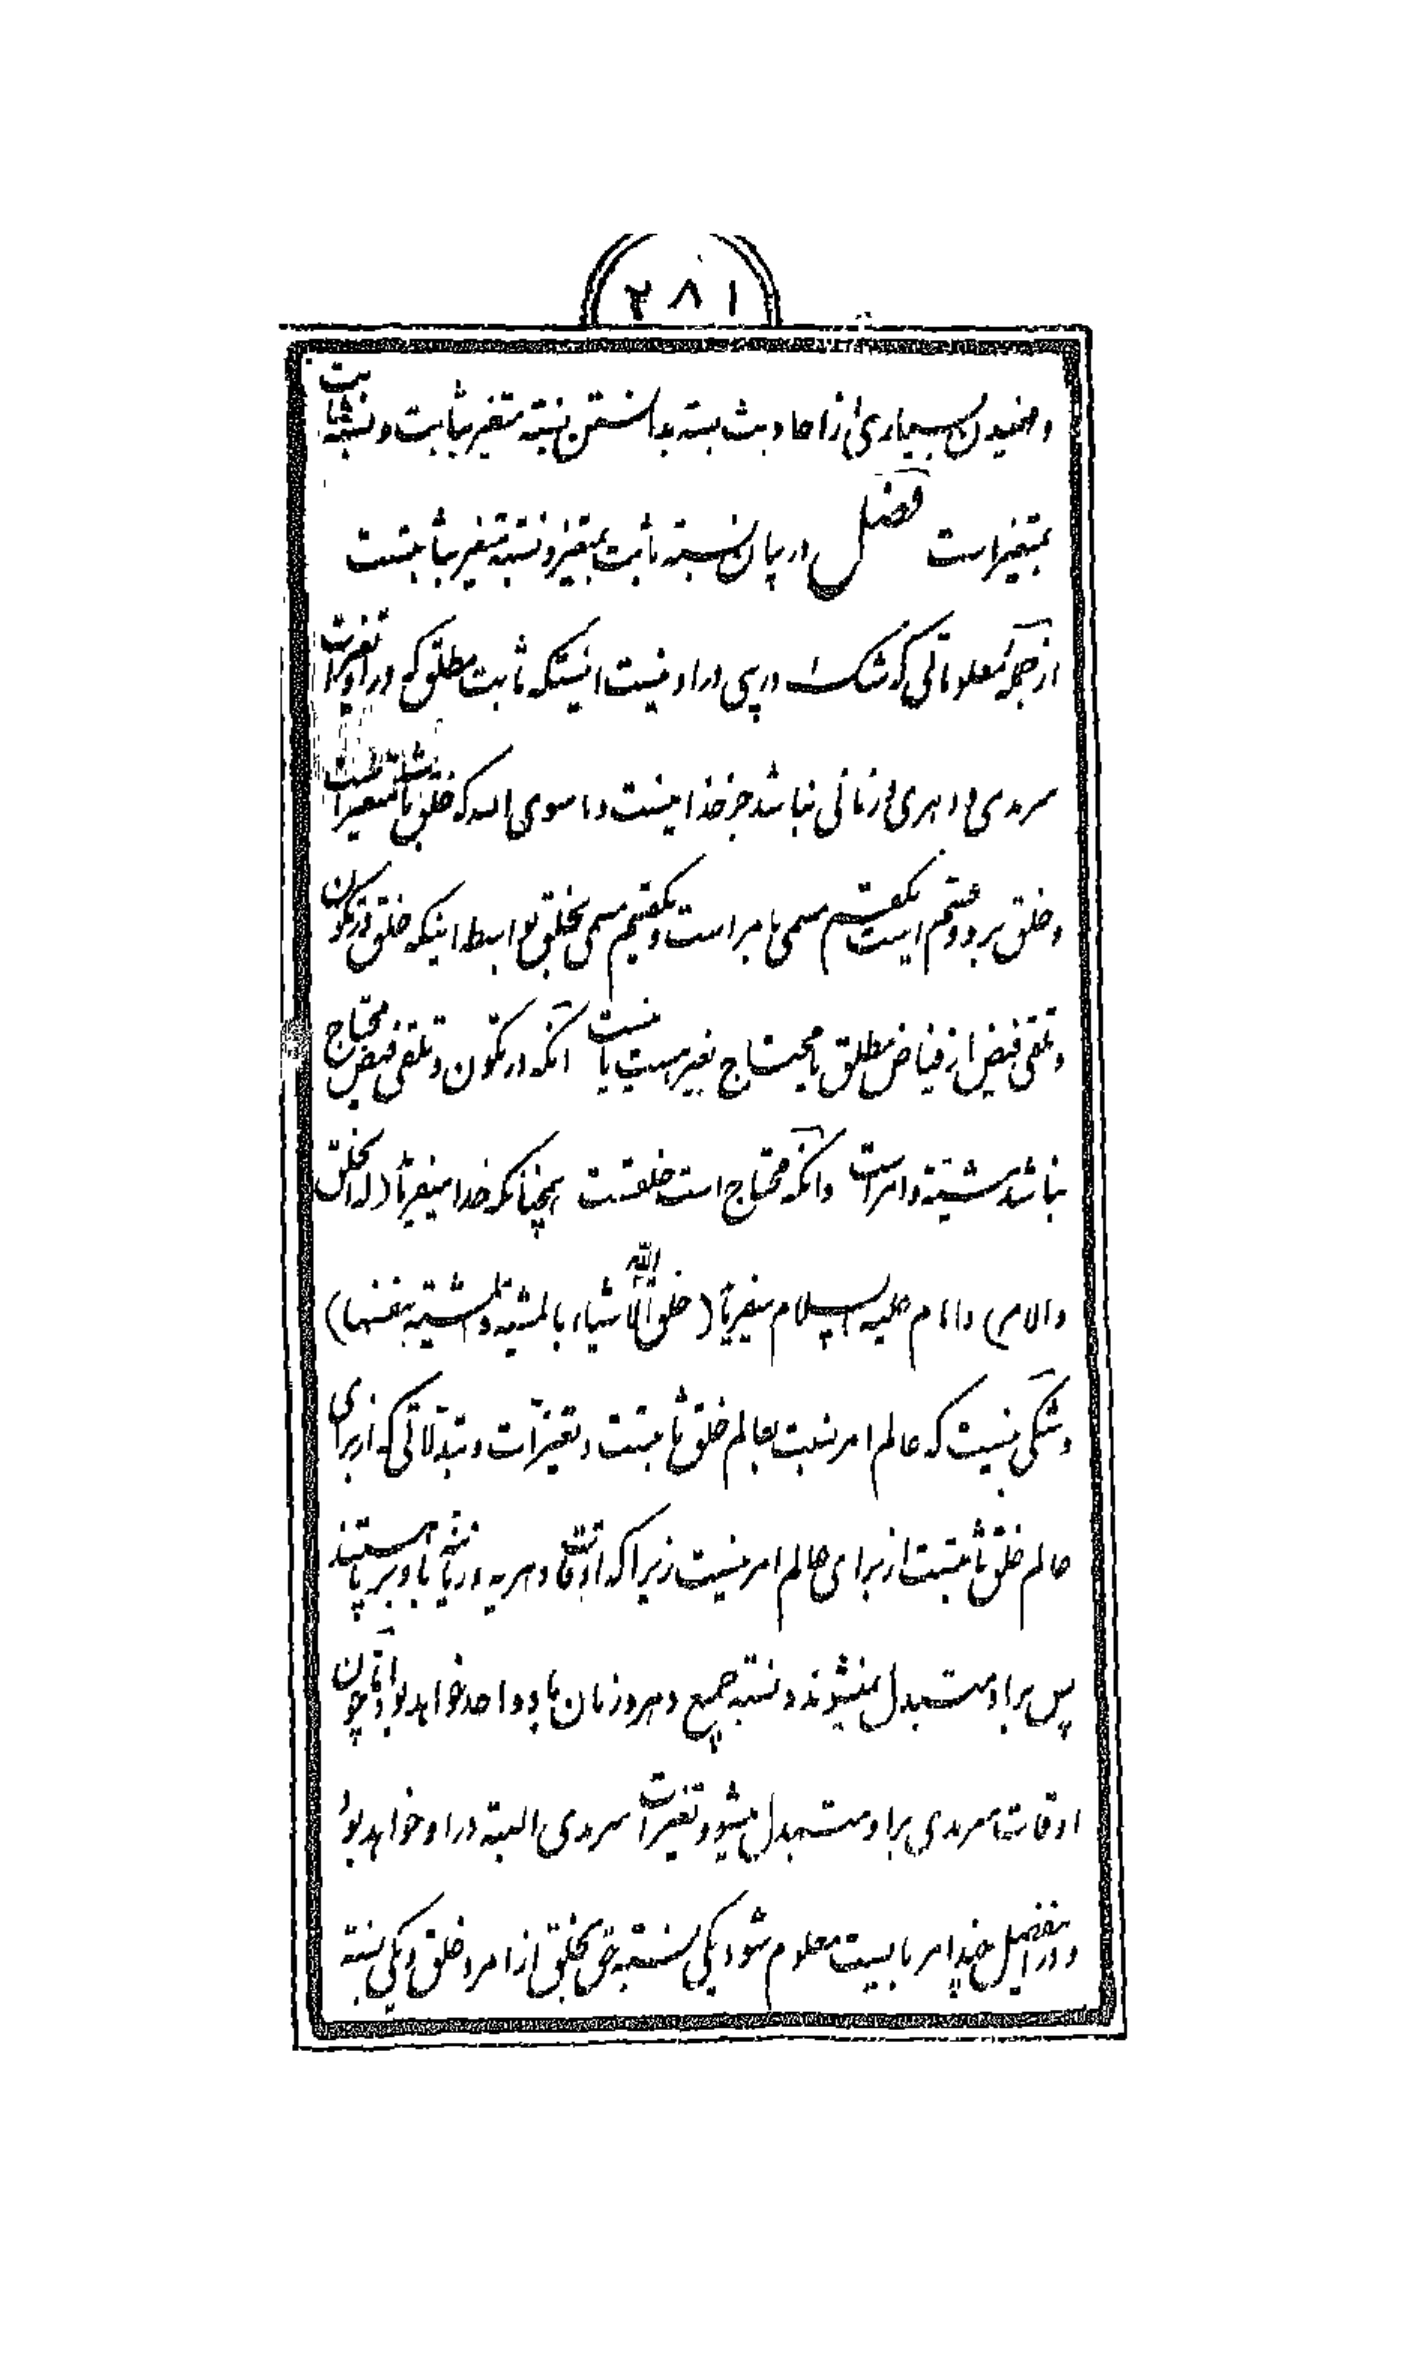 ۲۸۱
وفهمیدن بسیاری از احادیث بسته بدانستن نسبة متغیر بثابت و نسبة ثابت
بمتغیر است فصل در بیان نسبة ثابت بمتغیر و نسبة متغیر بثابتست
از جمله معلوماتی که شک را در پی در او نیست اینستکه ثابت مطلق که در او تغیرات
سرمدی و دهری و زمانی نباشد جز خدا نیست و ما سوی الله که خلق باشند متغیر است
و خلق بر دو قسم است یکقسم مسمی بامر است و یکقسم مسمی بخلق بواسطه اینکه خلق در تکون
و تلقی فیض از فیاض مطلق یا محتاج بغیر هست یا نیست آنکه در تکون و تلقی فیض محتاج
نباشد مشیة و امر است و آنکه محتاج است خلقست همچنانکه خدا میفرماید (له الخلق
والامر) و امام علیه السلام میفرماید (خلق الله الاشیاء بالمشیة والمشیة بنفسها)
و شکی نیست که عالم امر نسبت بعالم خلق ثابتست و تغیرات و تبدلاتی که از برای
عالم خلق ثابتست از برای عالم امر نیست زیرا که اوقات دهریه و زمانیه باو برپا هستند
پس بر او متبدل نمیشوند و نسبة جمیع دهر و زمان باو واحد خواهد بود و اما چون
اوقات سرمدی بر او متبدل میشود تغیرات سرمدی البته در او خواهد بود
و در اینفصل چند امر بایست معلوم شود یکی نسبة حق بخلق از امر و خلق و یکی نسبة